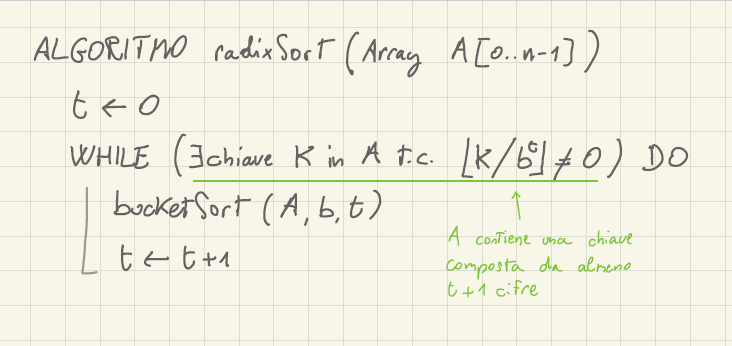 ALGORITMO radixSort (Array A[0..n-1])
t ← 0
WHILE (∃chiave K in A t.c. ⌊K/bᵗ⌋ ≠ 0) DO
bucketSort (A, b, t)
t ← t+1
A contiene una chiave
composta da almeno
t+1 cifre